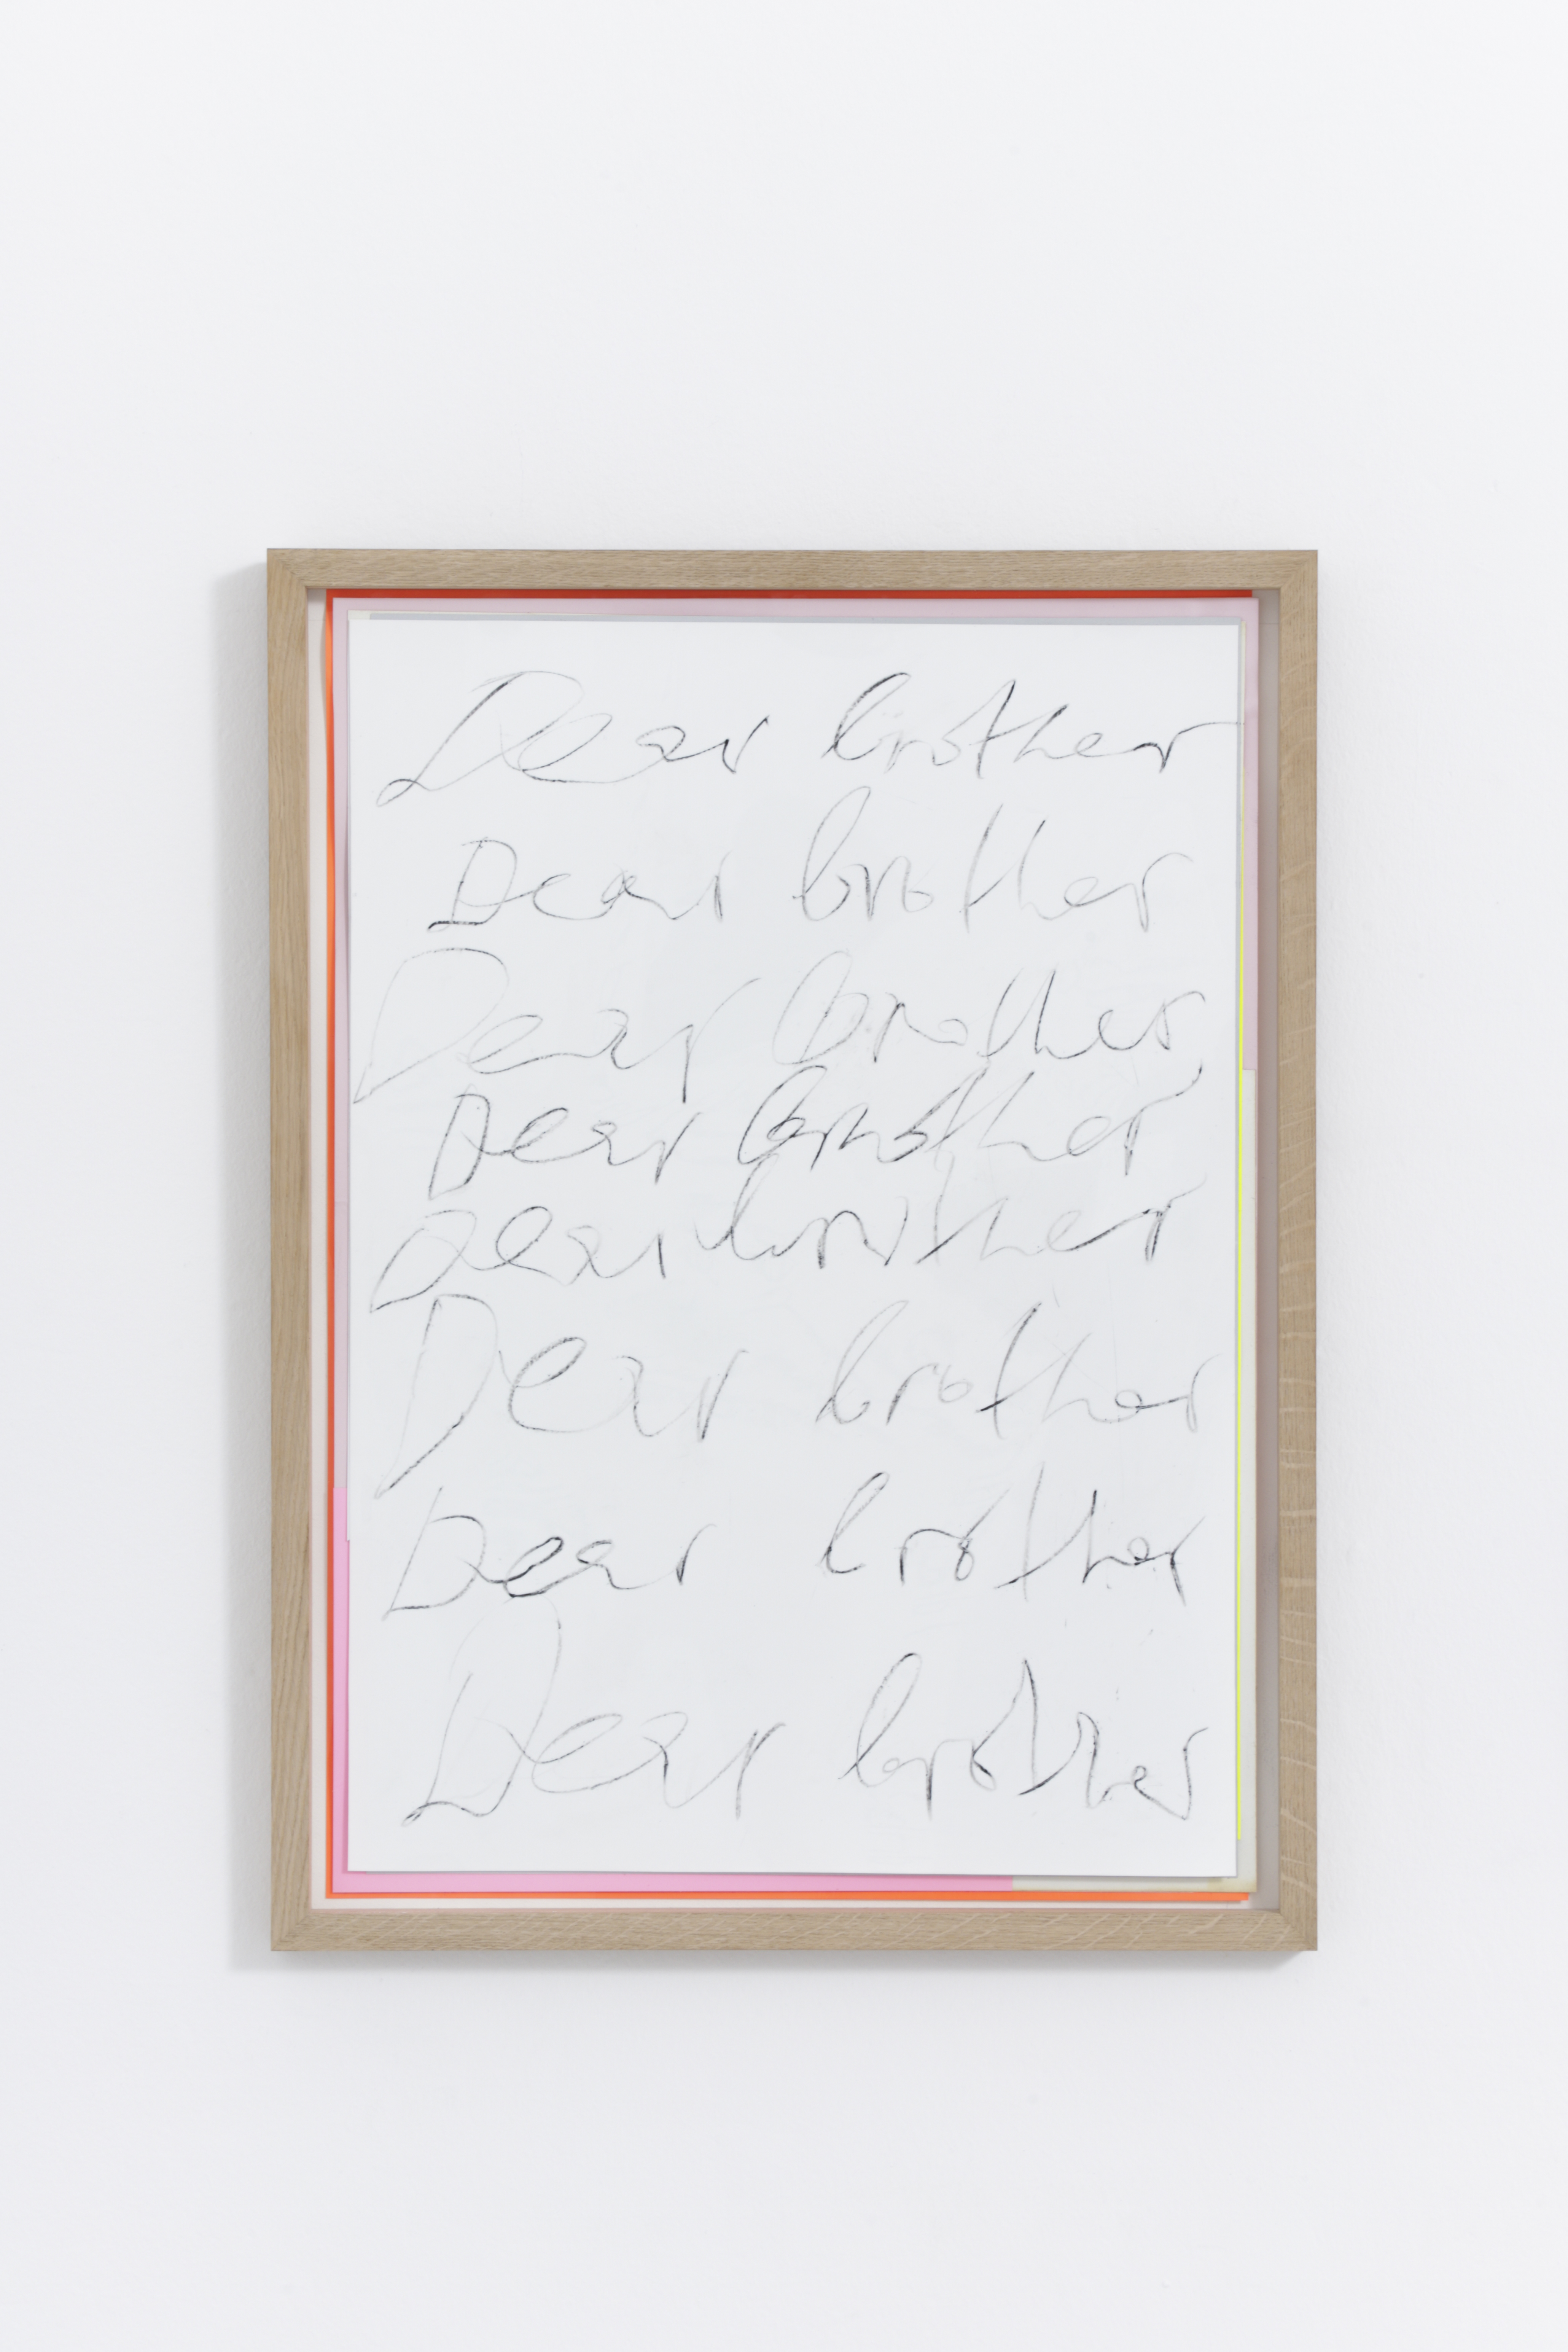 Dear brother
Dear brother
Dear brother
Dear brother
Dear brother
Dear brother
Dear brother
Dear brother